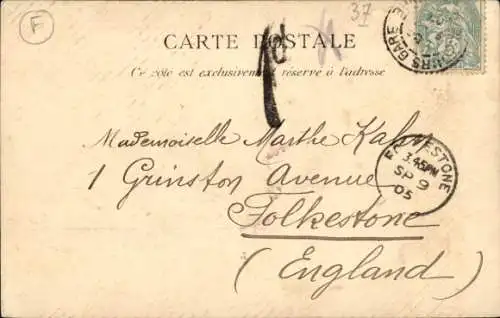 F
37
CARTE POSTALE
Ce côté est exclusivement réservé à l'adresse
1d
Mademoiselle Marthe Kahn
1 Grinston Avenue
Folkestone
(England)
FOLKESTONE
3.45PM
SP 9
05
GARE
5